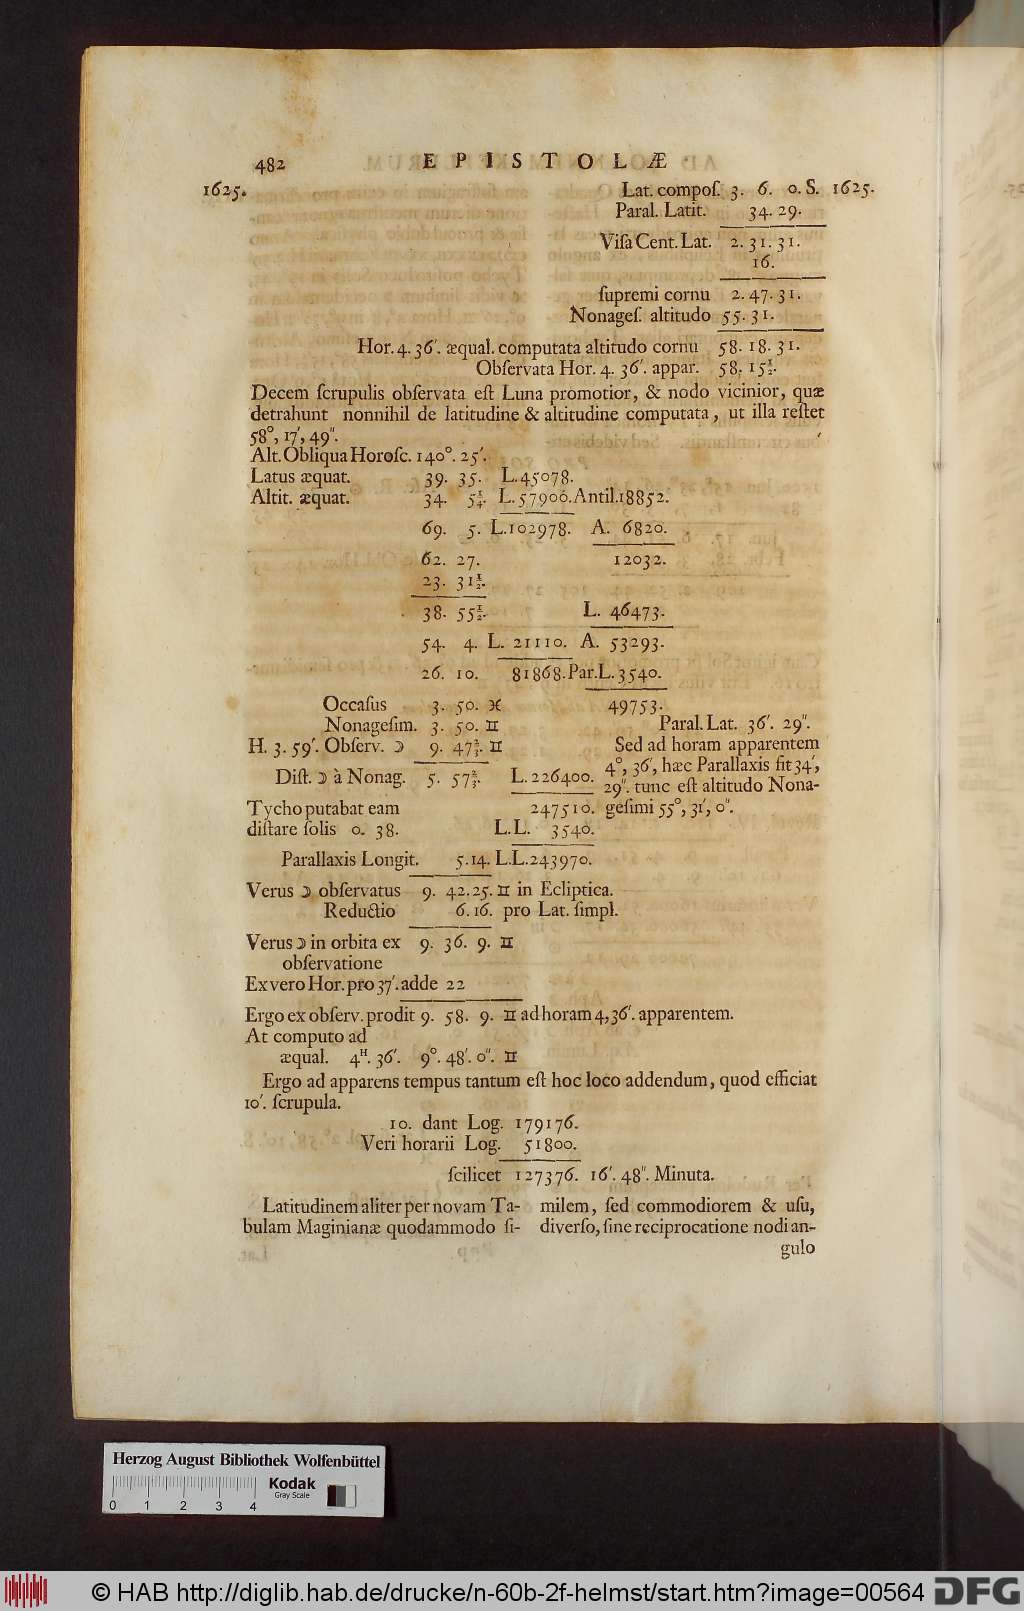 482 EPISTOLÆ
1625. Lat. compoſ. 3. 6. 0. S. 1625.
Paral. Latit. 34. 29.
Viſa Cent. Lat. 2. 31. 31.
16.
ſupremi cornu 2. 47. 31.
Nonageſ. altitudo 55. 31.
Hor. 4. 36′. æqual. computata altitudo cornu 58. 18. 31.
Obſervata Hor. 4. 36′. appar. 58. 15½.
Decem ſcrupulis obſervata eſt Luna promotior, & nodo vicinior, quæ
detrahunt nonnihil de latitudine & altitudine computata, ut illa reſtet
58°, 17′, 49″.
Alt. Obliqua Horoſc. 140°. 25′.
Latus æquat. 39. 35. L. 45078.
Altit. æquat. 34. 5¼. L. 57900. Antil. 18852.
69. 5. L. 102978. A. 6820.
62. 27. 12032.
23. 31½.
38. 55½. L. 46473.
54. 4. L. 21110. A. 53293.
26. 10. 81868. Par. L. 3540.
Occaſus 3. 50. ♓ 49753.
Nonageſim. 3. 50. ♊ Paral. Lat. 36′. 29″.
H. 3. 59′. Obſerv. ☽ 9. 47⅔. ♊ Sed ad horam apparentem
4°, 36′, hæc Parallaxis fit 34′,
Diſt. ☽ à Nonag. 5. 57⅔. L. 226400. 29″. tunc eſt altitudo Nona-
Tycho putabat eam 247510. geſimi 55°, 31′, 0″.
diſtare ſolis 0. 38. L.L. 3540.
Parallaxis Longit. 5. 14. L.L. 243970.
Verus ☽ obſervatus 9. 42. 25. ♊ in Ecliptica.
Reductio 6. 16. pro Lat. ſimpl.
Verus ☽ in orbita ex 9. 36. 9. ♊
obſervatione
Ex vero Hor. pro 37′. adde 22
Ergo ex obſerv. prodit 9. 58. 9. ♊ ad horam 4, 36′. apparentem.
At computo ad
æqual. 4ᴴ. 36′. 9°. 48′. 0″. ♊
Ergo ad apparens tempus tantum eſt hoc loco addendum, quod efficiat
10′. ſcrupula.
10. dant Log. 179176.
Veri horarii Log. 51800.
ſcilicet 127376. 16′. 48″. Minuta.
Latitudinem aliter per novam Ta-
bulam Maginianæ quodammodo ſi-
milem, ſed commodiorem & uſu,
diverſo, ſine reciprocatione nodi an-
gulo
Herzog August Bibliothek Wolfenbüttel
Kodak
Gray Scale
0 1 2 3 4
© HAB http://diglib.hab.de/drucke/n-60b-2f-helmst/start.htm?image=00564 DFG